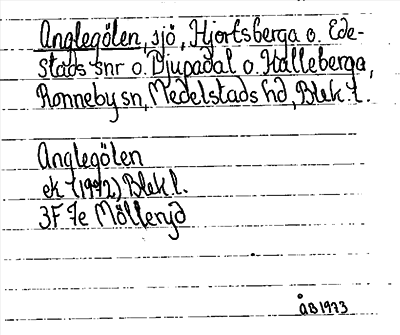 Anglegölen, sjö, Hjortsberga o. Ede-
stads snr o. Djupadal o. Halleberga,
Ronneby sn, Medelstads hd, Blek. l.
Anglegölen
ek (1972) Blek l.
3F 7e Möllenyd
ÅB 1973